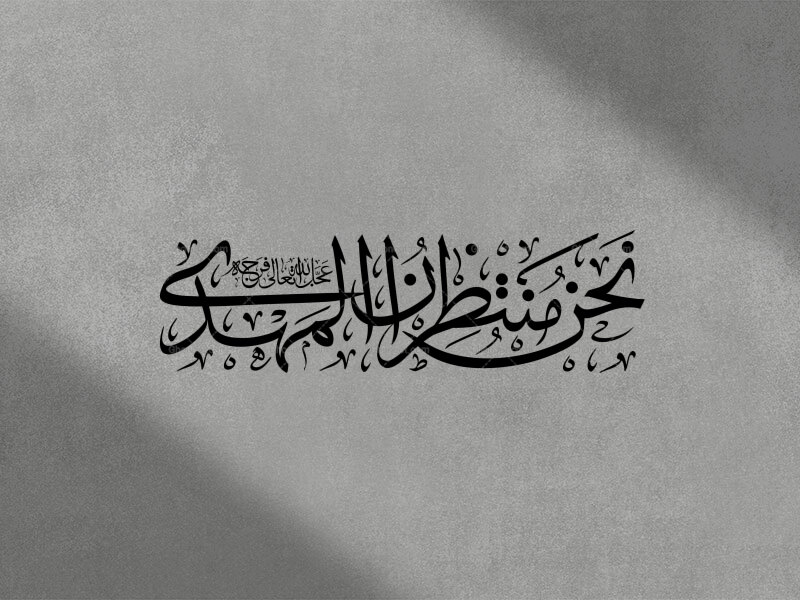 نحن منتظران المهدی
عجل الله تعالی فرجه